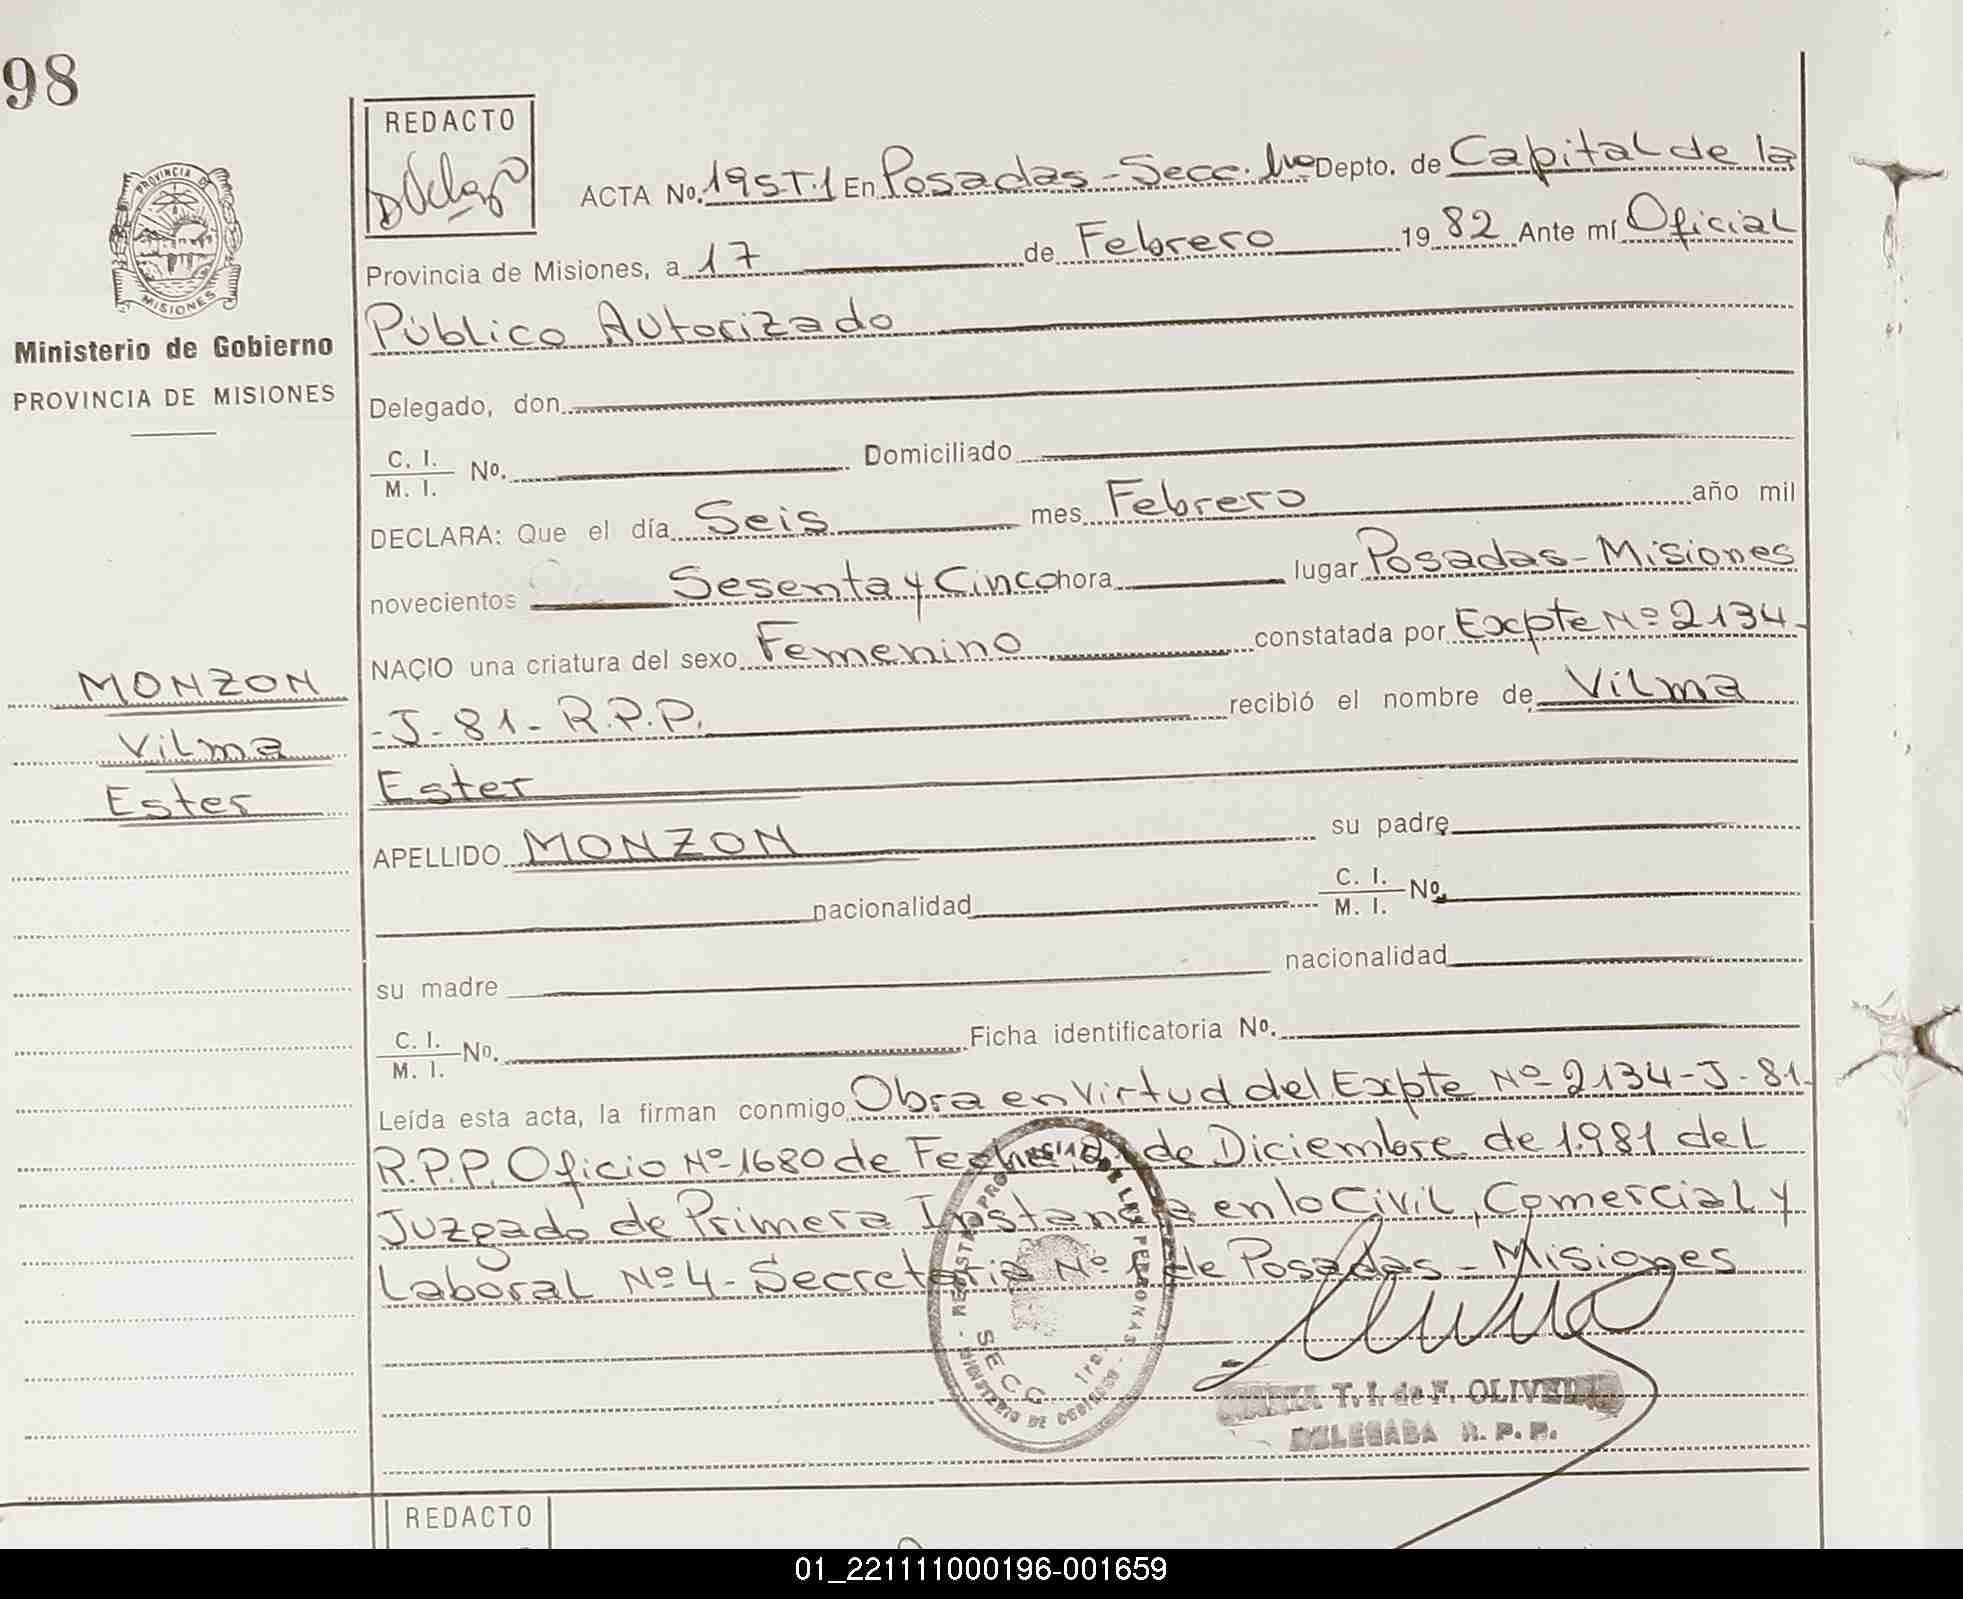 98
REDACTO
ACTA No. 195T.1 En Posadas - Secc. 1ra Depto. de Capital de la
Provincia de Misiones, a 17 de Febrero 1982 Ante mí Oficial
Público Autorizado
PROVINCIA DE
MISIONES
Ministerio de Gobierno
PROVINCIA DE MISIONES
Delegado, don
C. I.
M. I. No. Domiciliado
DECLARA: Que el día Seis mes Febrero año mil
novecientos Sesenta y Cinco hora lugar Posadas - Misiones
NACIO una criatura del sexo Femenino constatada por Expte Nº 2134-
-J-81- R.P.P. recibió el nombre de Vilma
Ester
MONZON
Vilma
Ester
APELLIDO MONZON su padre
nacionalidad C. I.
M. I. No.
su madre nacionalidad
C. I.
M. I. No. Ficha identificatoria No.
Leída esta acta, la firman conmigo Obra en Virtud del Expte Nº 2134-J-81-
R.P.P. Oficio Nº 1680 de Fecha de Diciembre de 1.981 del
Juzgado de Primera Instancia en lo Civil, Comercial y
Laboral Nº 4 - Secretaria Nº 1 de Posadas - Misiones
DE LAS PERSONAS
SECC. 1ra.
MINISTERIO DE GOBIERNO
T. I. de F. OLIVEIRA
DELEGADA R. P. P.
REDACTO
01_221111000196-001659